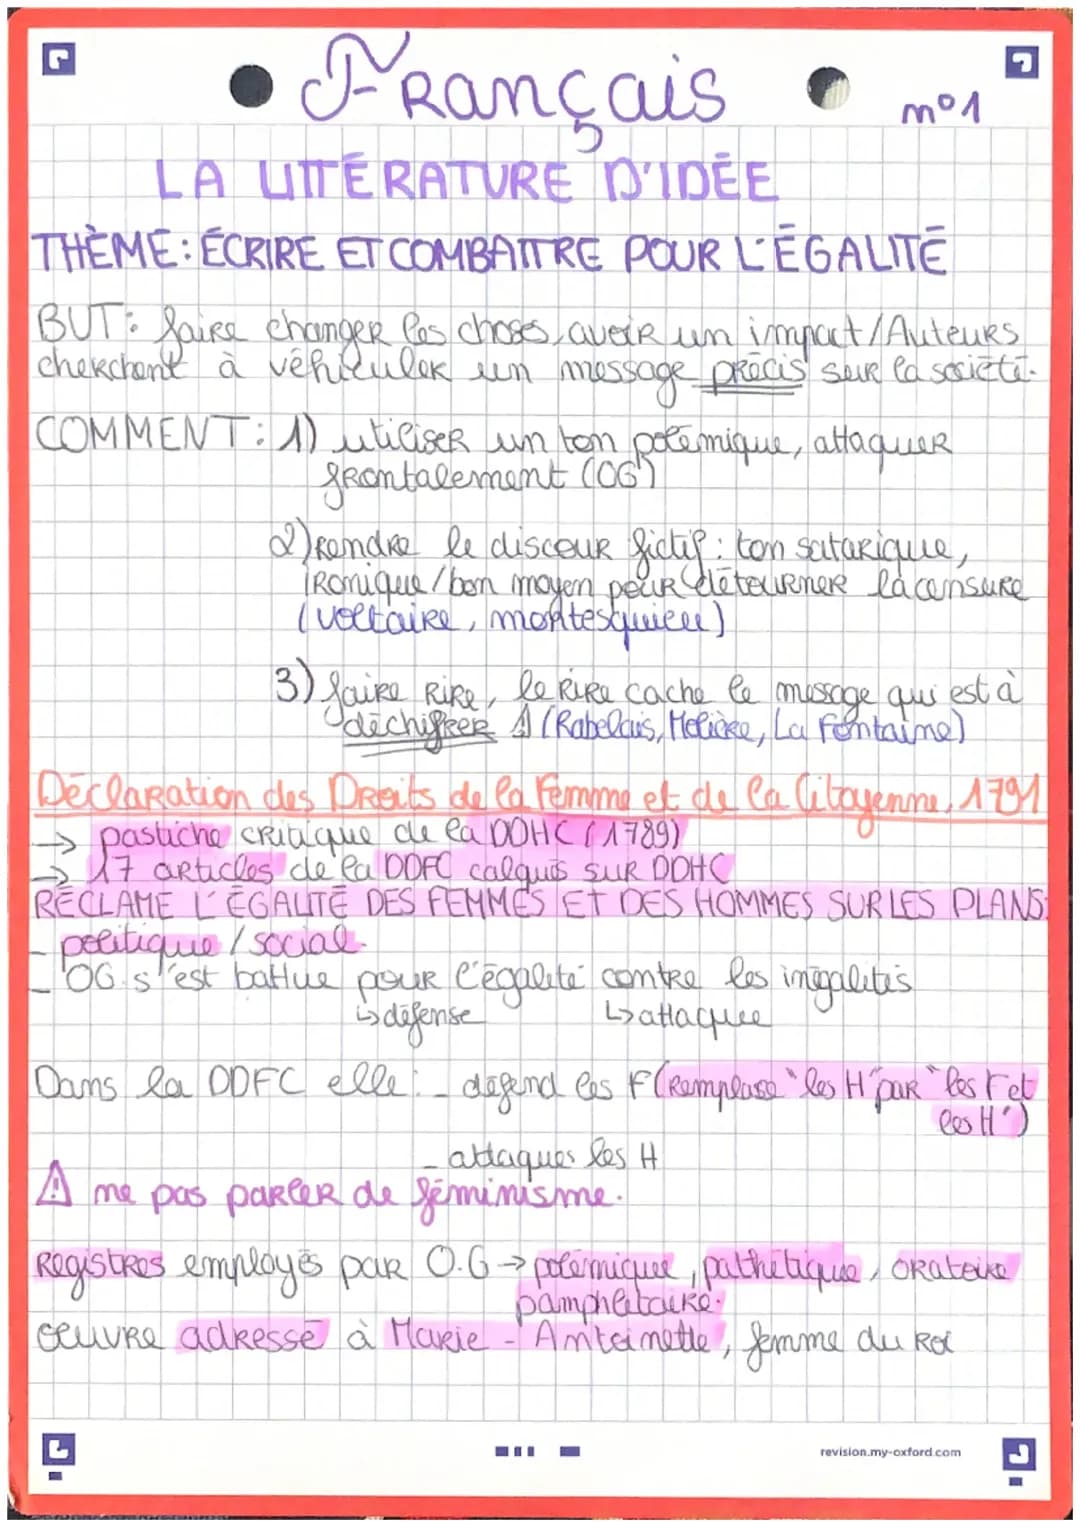 Français
n°1
LA LITTÉRATURE D'IDÉE
THÈME: ÉCRIRE ET COMBATTRE POUR L'ÉGALITÉ
BUT: faire changer les choses, avoir un impact/Auteurs
cherchent à véhiculer un message précis sur la société.
COMMENT: 1) utiliser un ton polémique, attaquer
frontalement (OG)
2) rendre le discour fictif: ton satarique,
ironique/bon moyen pour détourner la censure
(voltaire, montesquieu)
3) faire rire, le rire cache le message qui est à
déchiffrer (Rabelais, Molière, La Fontaine)
Déclaration des Droits de la Femme et de la Citoyenne, 1791
→ pastiche critique de la DDHC (1789)
→ 17 articles de la DDFC calqués sur DDHC
RÉCLAME L'ÉGALITÉ DES FEMMES ET DES HOMMES SUR LES PLANS:
- politique / social.
- OG s'est battue pour l'égalité contre les inégalités
↳ défense ↳ attaque
Dans la DDFC elle: - défend les F (remplase "les H" par "les F et
les H")
- attaques les H
⚠ ne pas parler de féminisme.
Registres employés par O.G → polémique, pathétique, oratoire
pamphlétaire.
œuvre adressé à Marie - Antoinette, femme du Roi
revision.my-oxford.com